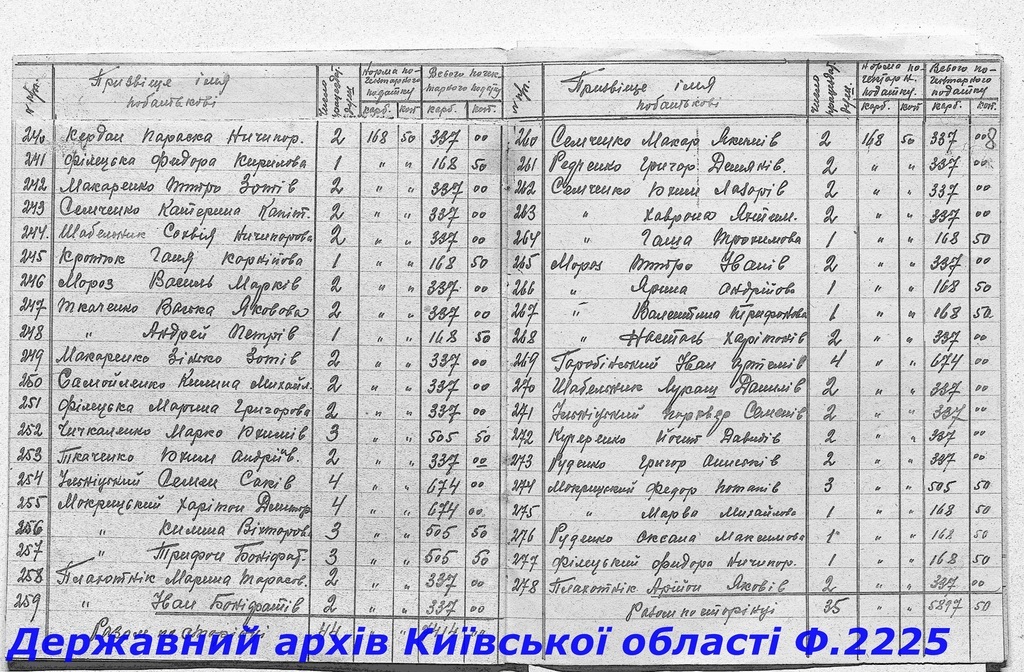 № п/р. Прізвіще імя побатькові Число працездат. душ Норма по-чентарного податку карб. коп Всього почен-тарного податку карб. коп.
240 Кердан Параска Ничипор. 2 168 50 337 00
241 Філецька Фидора Кирилова 1 " " 168 50
242 Макаренко Дмитро Зотів 2 " " 337 00
243 Семченко Катерина Капіт. 2 " " 337 00
244 Шабельник Софія Ничипорова 2 " " 337 00
245 Ганя 1 " " 168 50
246 Мороз Василь Марків 2 " " 337 00
247 Ткаченко Васька Яковова 2 " " 337 00
248 " Андрей Петрів 1 " " 168 50
249 Макаренко Зінько Зотів 2 " " 337 00
250 Самойленко Килина Михайл. 2 " " 337 00
251 Філецька Марина Григорова 2 " " 337 00
252 Чичкаленко Марко Юхимів 3 " " 505 50
253 Ткаченко Юхим Андріїв. 2 " " 337 00
254 Семен Саків 4 " " 674 00
255 Мокрицький Харітон Дмитр. 4 " " 674 00
256 " Килина Вікторова 3 " " 505 50
257 " Трифон Боніфат. 3 " " 505 50
258 Плахотнік Марина Тарасов. 2 " " 337 00
259 " Іван Боніфатів 2 " " 337 00
Разом по сторінці 44
№ п/р. Прізвіще імя побатькові Число працездат. душ. Норма по-чентарн. податку. карб. коп Всього по-чентарного податку карб. коп.
260 Семченко Макар Якимів 2 168 50 337 00 8
261 Редченко Григор Демянів. 2 " " 337 00
262 Семченко Юхим Лазорів 2 " " 337 00
263 " Хаврона 2 " " 337 00
264 " Ганна Трохимова 1 " " 168 50
265 Мороз Дмитро Іванів 2 " " 337 00
266 " Ярина Андрійова 1 " " 168 50
267 " Валентина Трифонова 1 " " 168 50
268 " Настась Харітонів 2 " " 337 00
269 Горобінський Іван Артемів 4 " " 674 00
270 Шабельник Лукаш Данилів 2 " " 337 00
271 Семенів 2 " " 337 00
272 Кучеренко Йосип Давидів 2 " " 337 00
273 Руденко Григор Анисимів 2 " " 337 00
274 Мокрицький Федор Потапів 3 " " 505 50
275 " Марва Михайлова 1 " " 168 50
276 Руденко Оксана Максимова 1 " " 168 50
277 Філецький Фидора Ничипор. 1 " " 168 50
278 Плахотнік Артом Яковів 2 " " 337 00
Разом по сторінці 35 5897 50
Державний архів Київської області Ф.2225